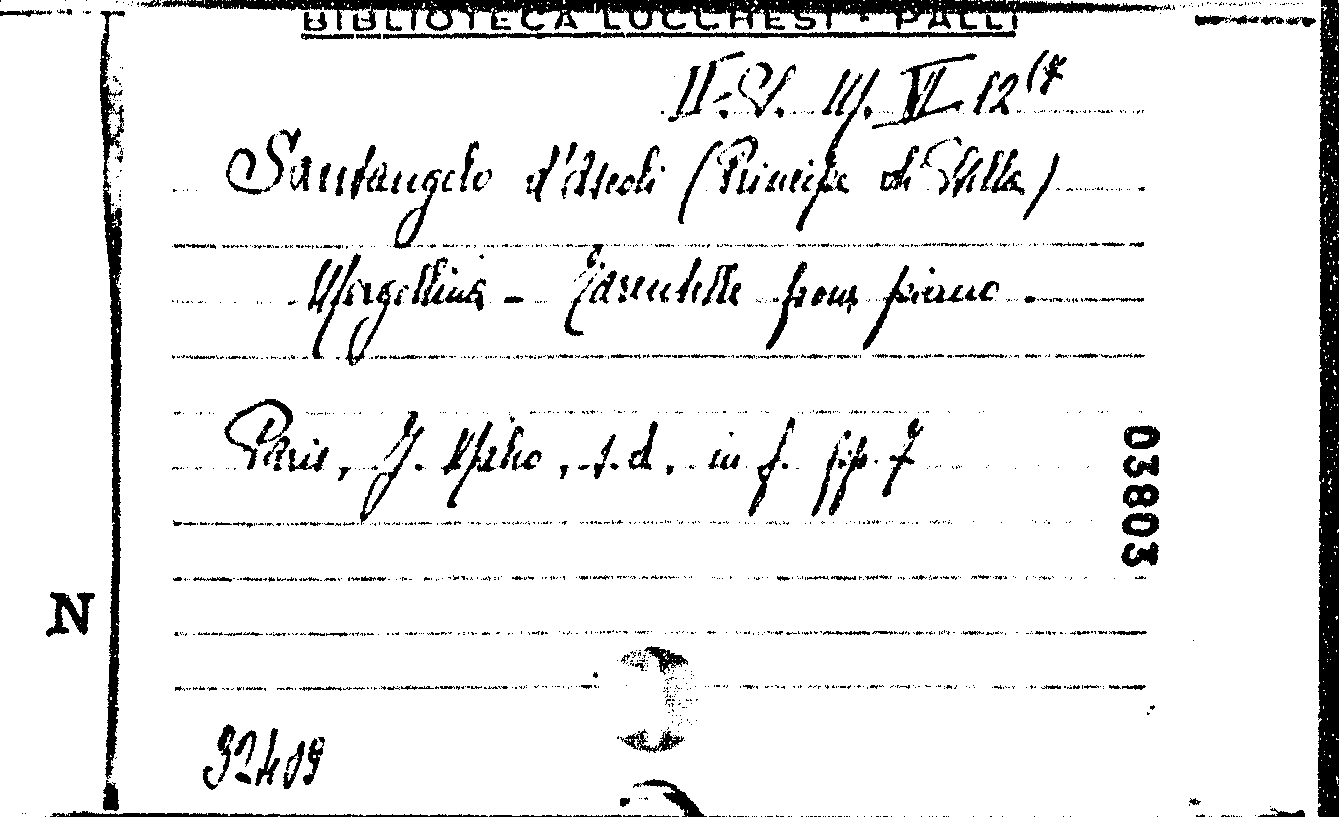 BIBLIOTECA LUCCHESI - PALLI
II-St. M. VI. 12 (7
Santangelo d'Ascoli (Principe di Stella)
Mergellina - Tarentelle pour piano.
Paris, J. Maho, s.d. in f. pp. 7
03803
N
32409